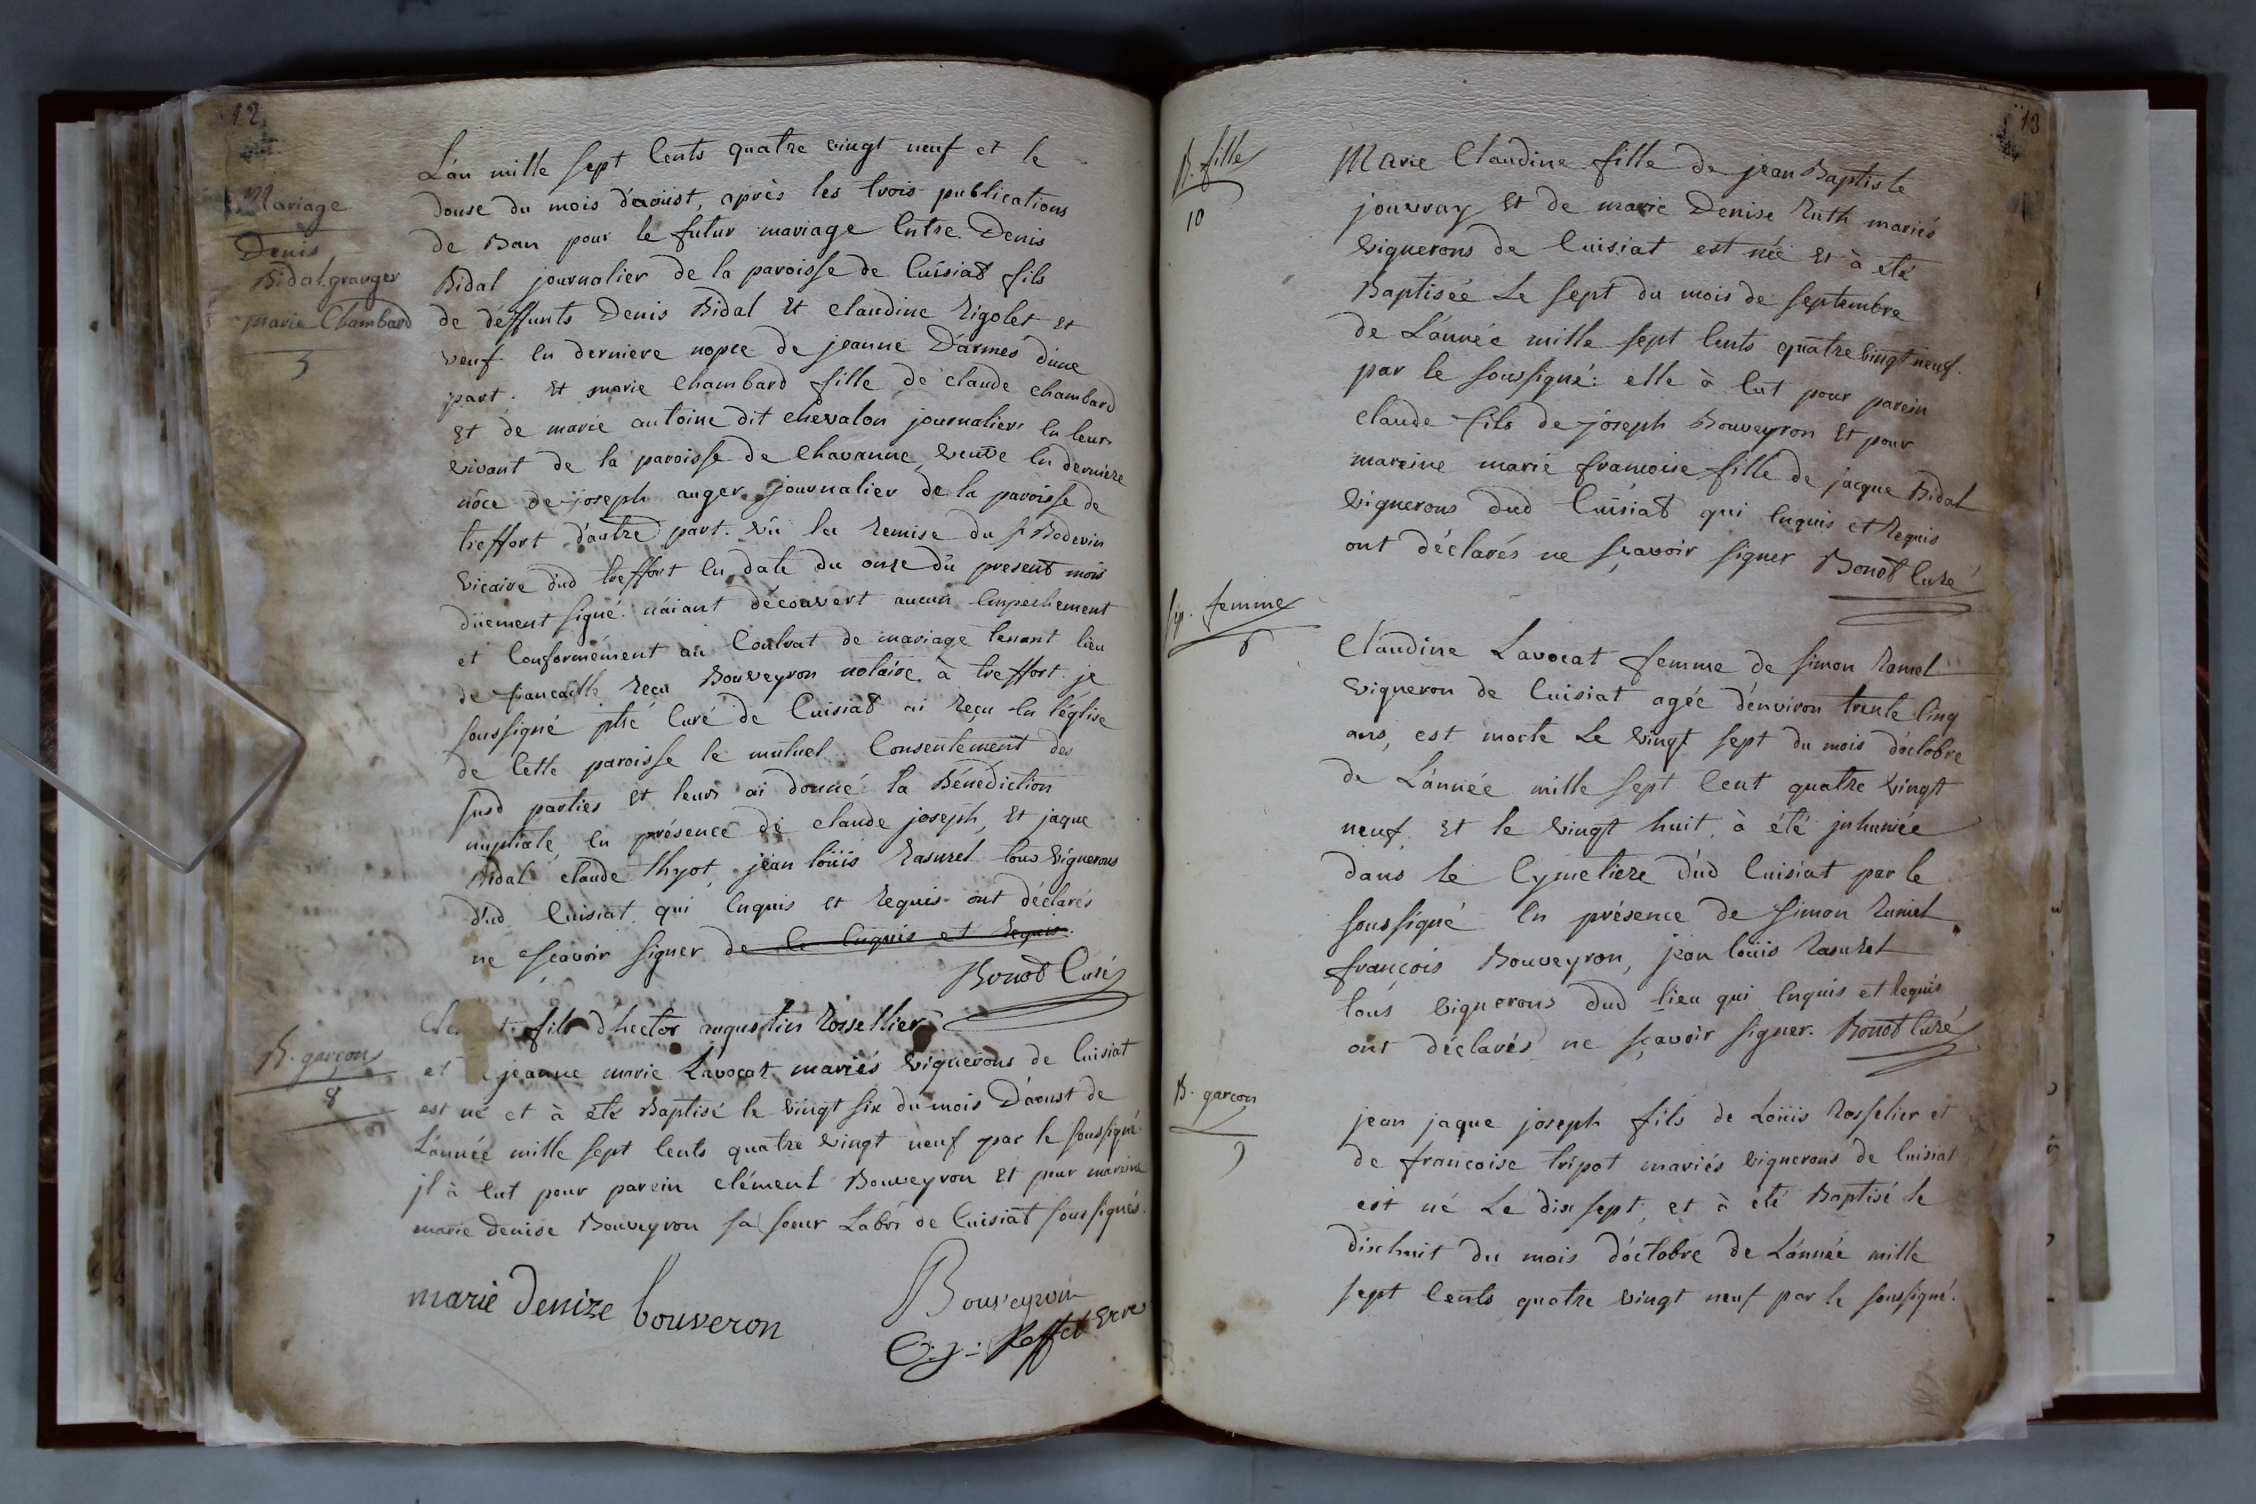 12
Mariage
Denis
Bidal granger
marie Chambard
3
L'an mille sept Cents quatre vingt neuf et le
douse du mois d'aoüst, après les trois publications
de Ban pour le futur mariage Entre Denis
Bidal journalier de la paroisse de Cuisiat fils
de déffunts Denis Bidal Et claudine Rigolet et
veuf En derniere nopce de jeanne D'armes d'une
part. Et marie Chambard fille de claude chambard
Et de marie antoine dit chevalon journaliers En leurs
vivant de la paroisse de Chavanne, veuve En derniere
nôce de joseph auger journalier de la paroisse de
treffort d'autre part. vü la Remise du Sr Bedevin
vicaire dud treffort En date du onze dü present mois
düement signé. n'aiant découvert aucun Empechement
et Conformement au Contrat de mariage tenant lieu
de françaille Reçu Bouveyron notaire à treffort. je
soussigné ptre Curé de Cuisiat ai Reçu En l'église
de Cette paroisse le mutuel Consentement des
susd parties Et leurs ai donné la Bénédiction
nuptiale En présence de claude joseph, Et jaque
Bidal claude thyot, jean loüis Rasurel tous vignerons
dud Cuisiat qui Enquis et Requis ont déclarés
ne sçavoir signer de ce Enquis et Requis.
Bonot Curé
B. garçon
8
fils d'hector augustin Rossellier
et jeanne marie Lavocat mariés vignerons de Cuisiat
est né et à été Baptisé le vingt six du mois D'aoust de
L'année mille sept Cents quatre vingt neuf par le soussigné.
jl à Eut pour parein clément Bouveyron Et pour mareine
marie Denise Bouveyron sa soeur Labrs de Cuisiat soussignés.
marie denize bouveron
Bouveyron
13
B. fille
10
Marie Claudine fille de jean Baptiste
jouvray Et de marie Denise Ruth mariés
vignerons de Cuisiat est née Et à été
Baptisée Le sept du mois de septembre
de L'année mille sept Cents quatre vingt neuf.
par le soussigné: elle à Eut pour parein
claude fils de joseph Bouveyron Et pour
mareine marie francoise fille de jacque Bidal
vignerons dud Cuisiat qui Enquis et Requis
ont déclarés ne sçavoir signer Bonot Curé
sép. femme
6
Claudine Lavocat femme de simon Ramel
vigneron de Cuisiat agée d'environ trente Cinq
ans, est morte Le vingt sept du mois d'octobre
de L'année mille sept Cent quatre vingt
neuf, Et le vingt huit, à été jnhumée
dans le Cymetiere dud Cuisiat par le
soussigné En présence de simon Ramel
françois Bouveyron, jean loüis Rasurel
tous vignerons dud lieu qui Enquis et Requis
ont déclarés ne sçavoir signer. Bonot Curé
B. garçon
9
jean jaque joseph fils de Loüis Rosselier et
de françoise tripot mariés vignerons de Cuisiat
est né Le dix sept, et à été Baptisé le
dix huit du mois d'octobre de L'année mille
sept Cents quatre vingt neuf par le soussigné.